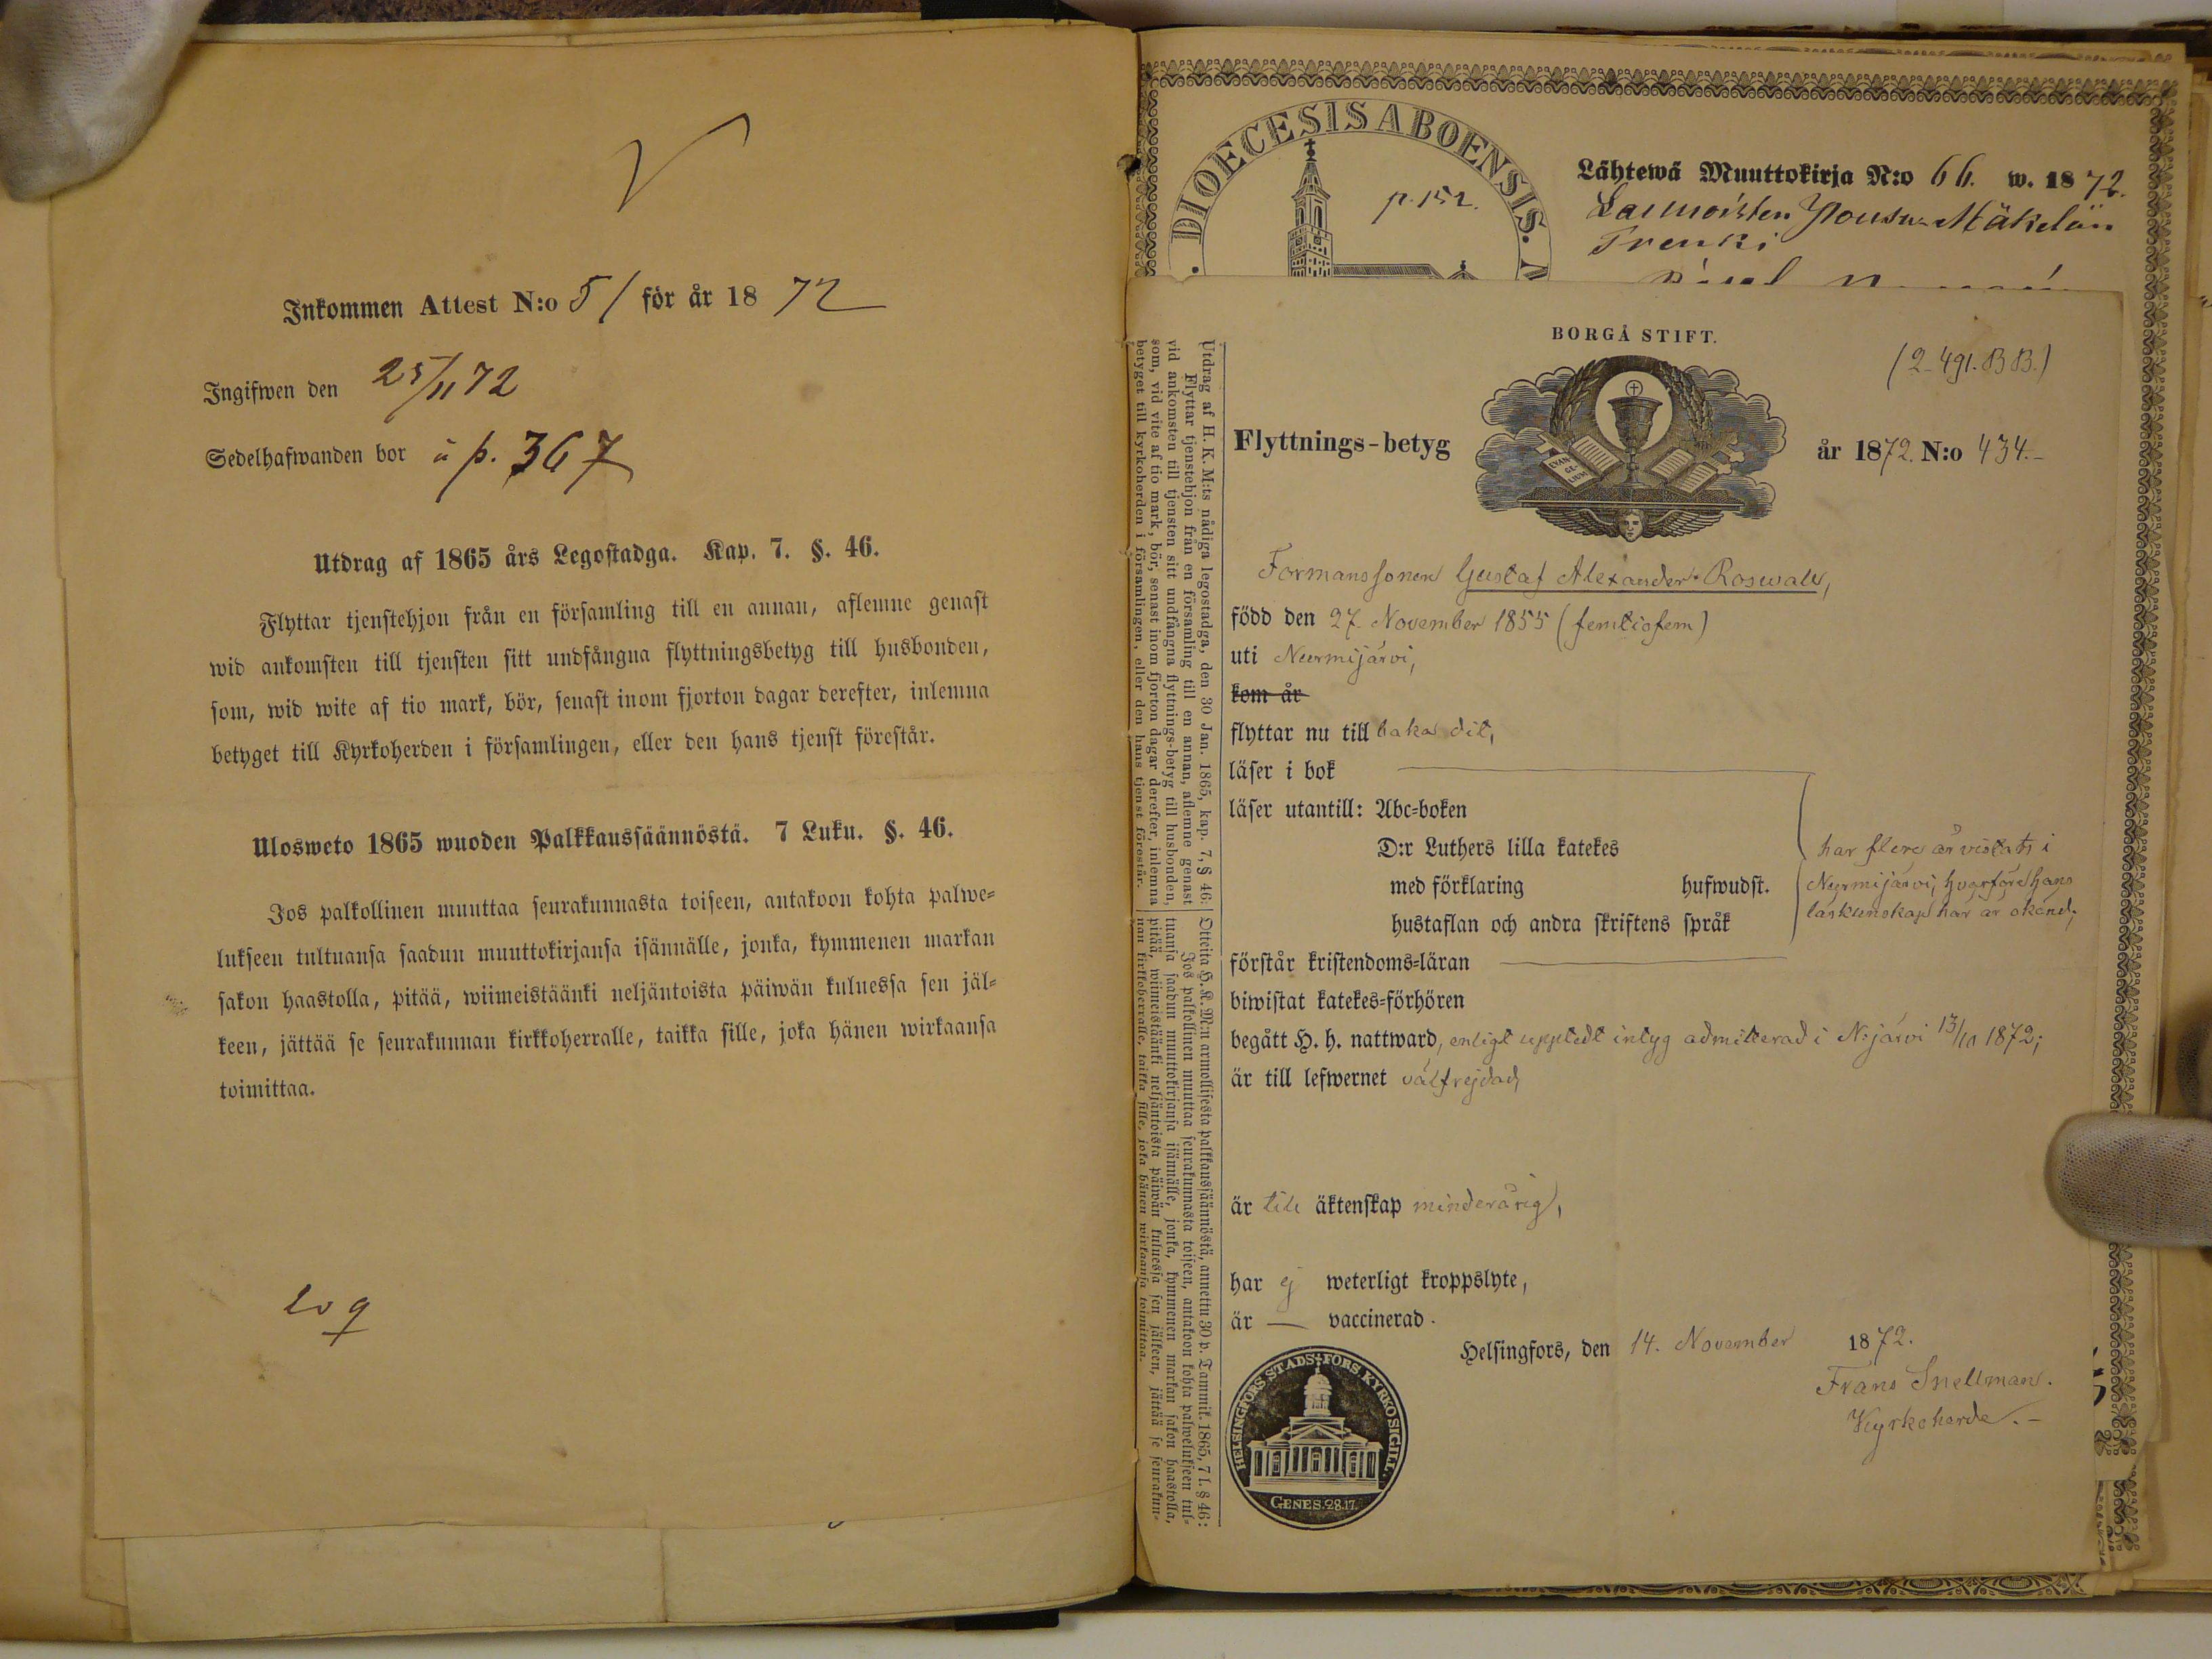 Inkommen Attest N:o 51 för år 1872
Ingifwen den 25/11 72
Sedelhafwanden bor å p. 367
Utdrag af 1865 års Legostadga. Kap. 7. §. 46.
Flyttar tjenstehjon från en församling till en annan, aflemne genast
wid ankomsten till tjensten sitt undfångna flyttningsbetyg till husbonden,
som, wid wite af tio mark, bör, senast inom fjorton dagar derefter, inlemna
betyget till Kyrkoherden i församlingen, eller den hans tjenst förestår.
Ulosweto 1865 wuoden Palkkaussäännöstä. 7 Luku. §. 46.
Jos palkollinen muuttaa seurakunnasta toiseen, antakoon kohta palwe=
lukseen tultuansa saadun muuttokirjansa isännälle, jonka, kymmenen markan
sakon haastolla, pitää, wiimeistäänki neljäntoista päiwän kuluessa sen jäl=
keen, jättää se seurakunnan kirkkoherralle, taikka sille, joka hänen wirkaansa
toimittaa.
DIOECESIS ABOENSIS.
p. 152.
Lähtewä Muuttokirja N:o 66. w. 1872.
Mäkelän
Trenki
Utdrag af H. K. M:ts nådiga legostadga, den 30 Jan. 1865, kap. 7, § 46:
Flyttar tjenstehjon från en församling till en annan, aflemne genast
vid ankomsten till tjensten sitt undfångna flyttnings-betyg till husbonden,
som, vid vite af tio mark, bör, senast inom fjorton dagar derefter, inlemna
betyget till kyrkoherden i församlingen, eller den hans tjenst förestår.
Otteita H. K. M:n armollisesta palkkaussäännöstä, annettu 30 p. Tammik. 1865, 7 l. § 46:
Jos palkollinen muuttaa seurakunnasta toiseen, antakoon kohta palwelukseen tul=
tuansa saadun muuttokirjansa isännälle, jonka, kymmenen markan sakon haastolla,
pitää, wiimeistäänki neljäntoista päiwän kuluessa sen jälkeen, jättää se seurakun=
nan kirkkoherralle, taikka sille, joka hänen wirkaansa toimittaa.
BORGÅ STIFT.
(2. 491. B B.)
EVAN
GE-
LIUM
Flyttnings-betyg år 1872. N:o 434.-
Formanssonen Gustaf Alexander Roswall,
född den 27. November 1855 (femtiofem)
uti Nurmijärvi,
kom år
flyttar nu till baka dit,
läser i bok
läser utantill: Abc=boken
D:r Luthers lilla katekes
med förklaring hufwudst.
hustaflan och andra skriftens språk
har flere år vistats i
Nurmijärvi, hvarföre hans
läskunskap här är okänd;
förstår kristendoms=läran
biwistat katekes=förhören
begått H. h. nattward, enligt upptedt intyg admitterad i N:järvi 13/10 1872;
är till lefwernet välfrejdad,
är till äktenskap minderårig,
har ej weterligt kroppslyte,
är — vaccinerad.
Helsingfors, den 14. November 1872.
Frans Snellman.
Kyrkoherde.-
HELSINGFORS STADS-FÖRS. KYRKO SIGILL.
GENES. 28.17.